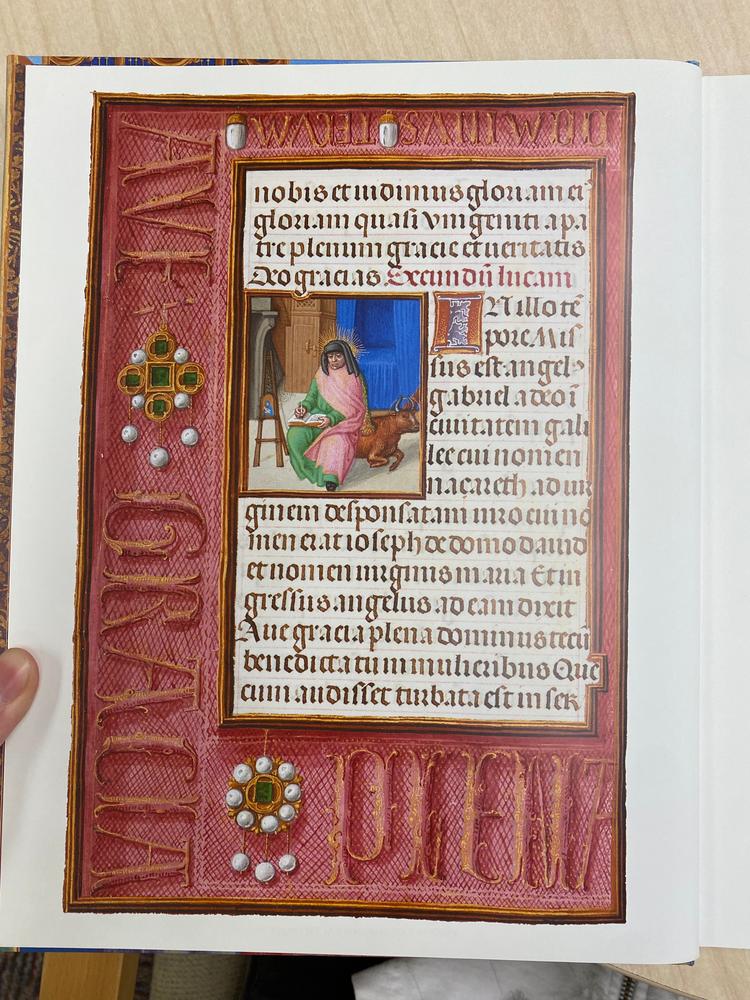 AVE
GRACIA
PLENA
DOMINVS TECVM
nobis et vidimus gloriam eiꝰ
gloriam quasi vnigeniti a pa
tre plenum gracie et ueritatis
Deo gracias. Secundū lucam
IN illo tē
pore Mis
sus est angelꝰ
gabriel a deo ī
ciuitatem gali
lee cui nomen
nacareth ad uir
ginem desponsatam uiro cui no
men erat ioseph de domo dauid
et nomen uirginis maria Et in
gressus angelus ad eam dixit
Aue gracia plena dominus tecū
benedicta tu in mulieribus Que
cum audisset turbata est in ser